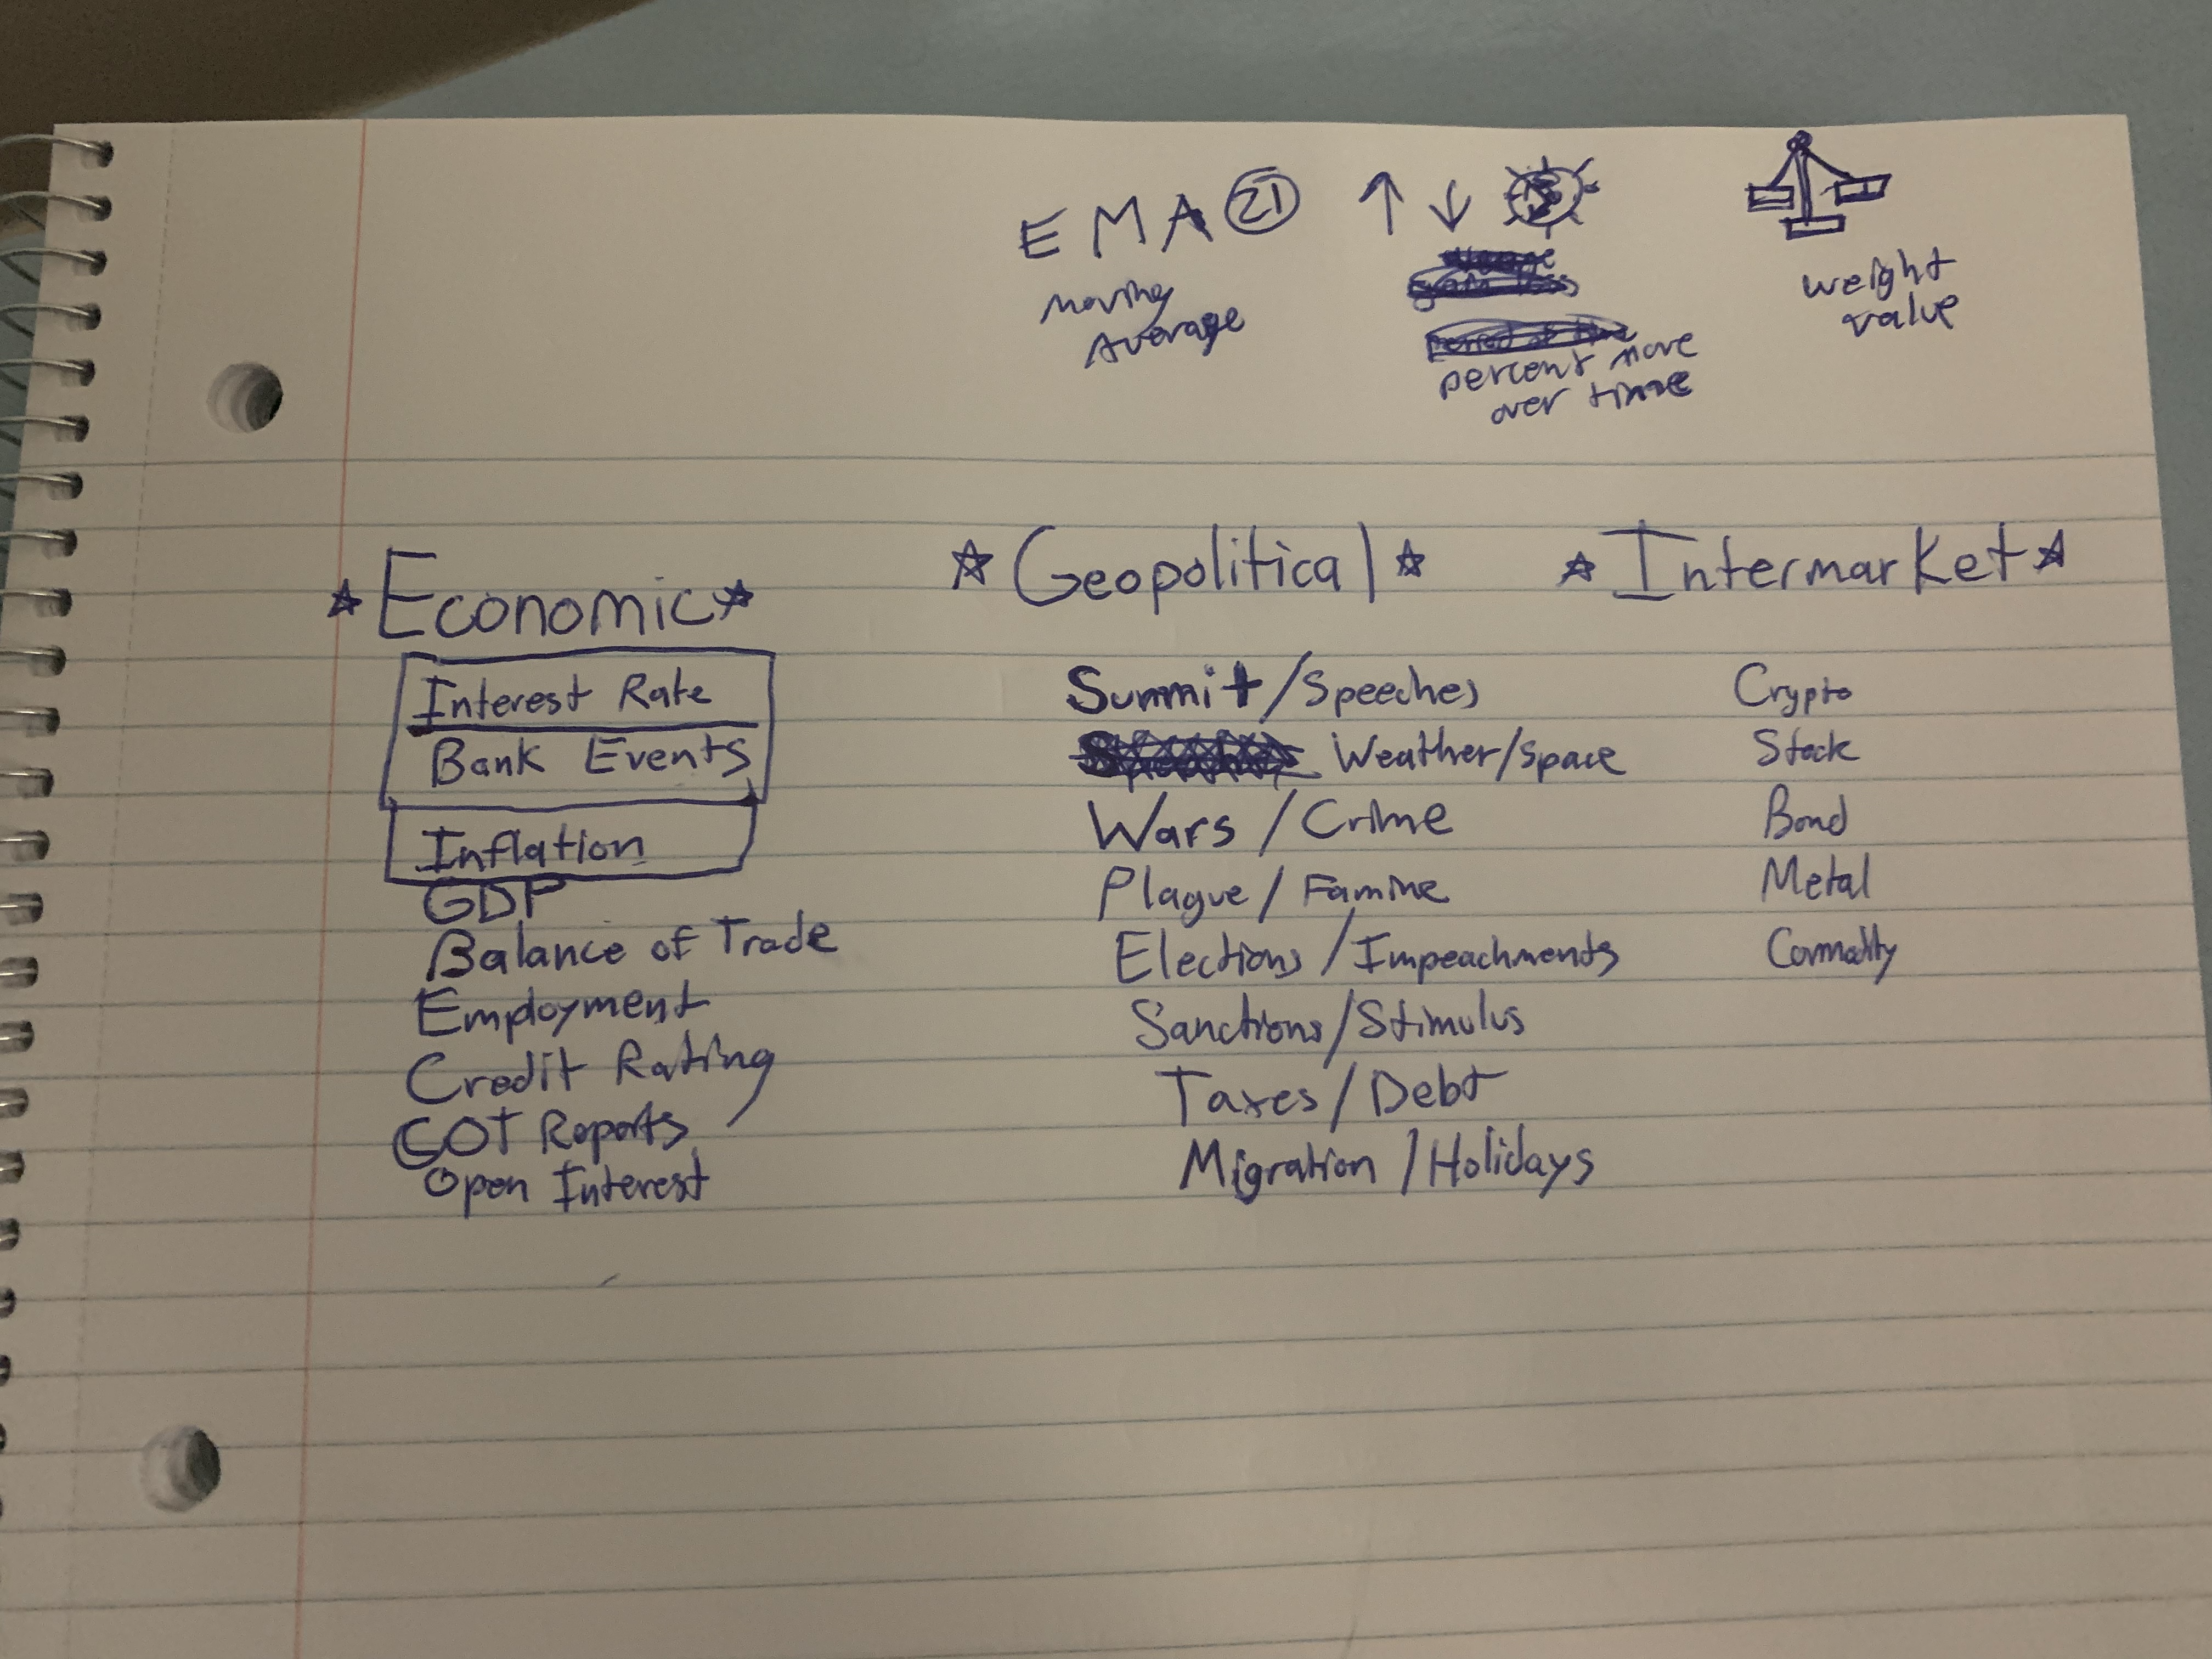 EMA 21 ↑ ↓
moving
Average
percent move
over time
weight
value
☆ Economic ☆
Interest Rate
Bank Events
Inflation
GDP
Balance of Trade
Employment
Credit Rating
COT Reports
Open Interest
☆ Geopolitical ☆
Summit/Speeches
Weather/Space
Wars / Crime
Plague / Famine
Elections / Impeachments
Sanctions/Stimulus
Taxes / Debt
Migration / Holidays
☆ Intermarket ☆
Crypto
Stock
Bond
Metal